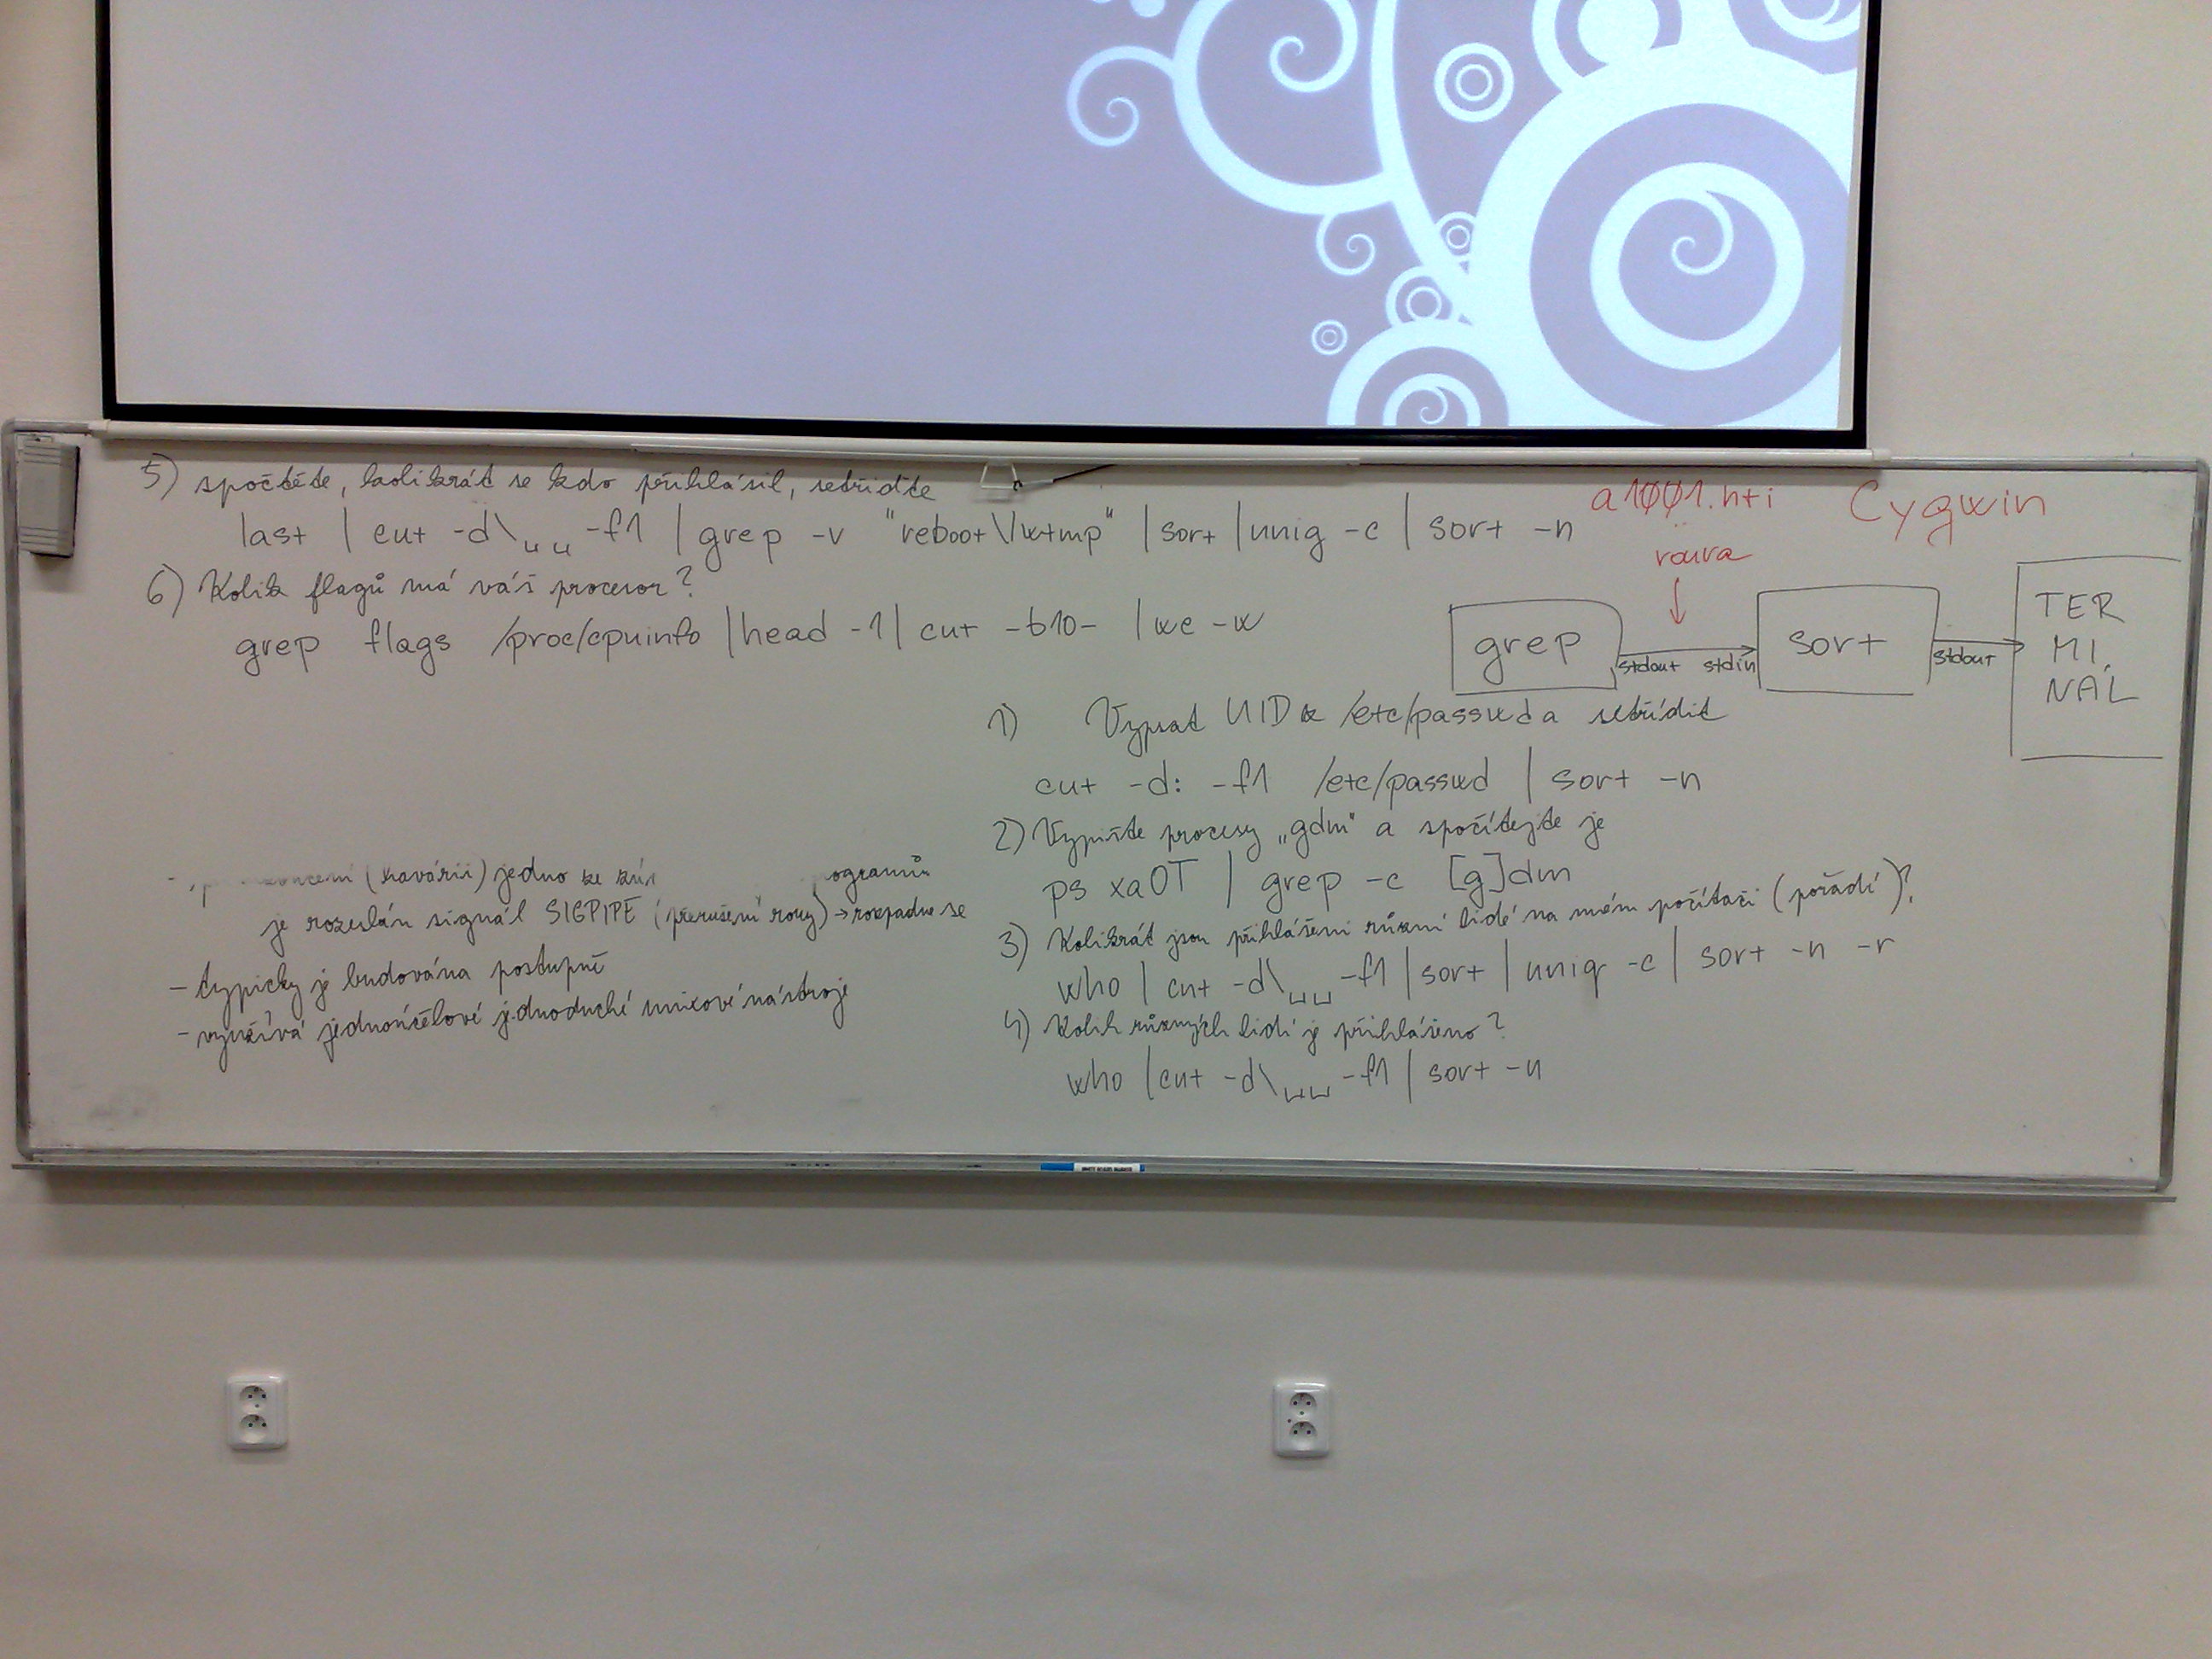 5) spočtěte, kolikrát se kdo přihlásil, setřiďte
last | cut -d\␣␣-f1 | grep -v "reboot\|wtmp" | sort | uniq -c | sort -n
6) Kolik flagů má váš procesor?
grep flags /proc/cpuinfo | head -1 | cut -b10- | wc -w
a1001.nti
Cygwin
roura
grep
stdout stdin
sort
stdout
TER
MI.
NÁL
1) Vypsat UID z /etc/passwd a setřídit
cut -d: -f1 /etc/passwd | sort -n
2) Vypište procesy „gdm" a spočítejte je
ps xaOT | grep -c [g]dm
3) Kolikrát jsou přihlášeni různí lidé na mém počítači (pořadí)?
who | cut -d\␣␣-f1 | sort | uniq -c | sort -n -r
4) Kolik různých lidí je přihlášeno?
who | cut -d\␣␣-f1 | sort -u
(havárii) jedno ze
je rozeslán signál SIGPIPE (přerušení roury) → rozpadne se
- typicky je budována postupně
- využívá jednoúčelové jednoduché unixové nástroje